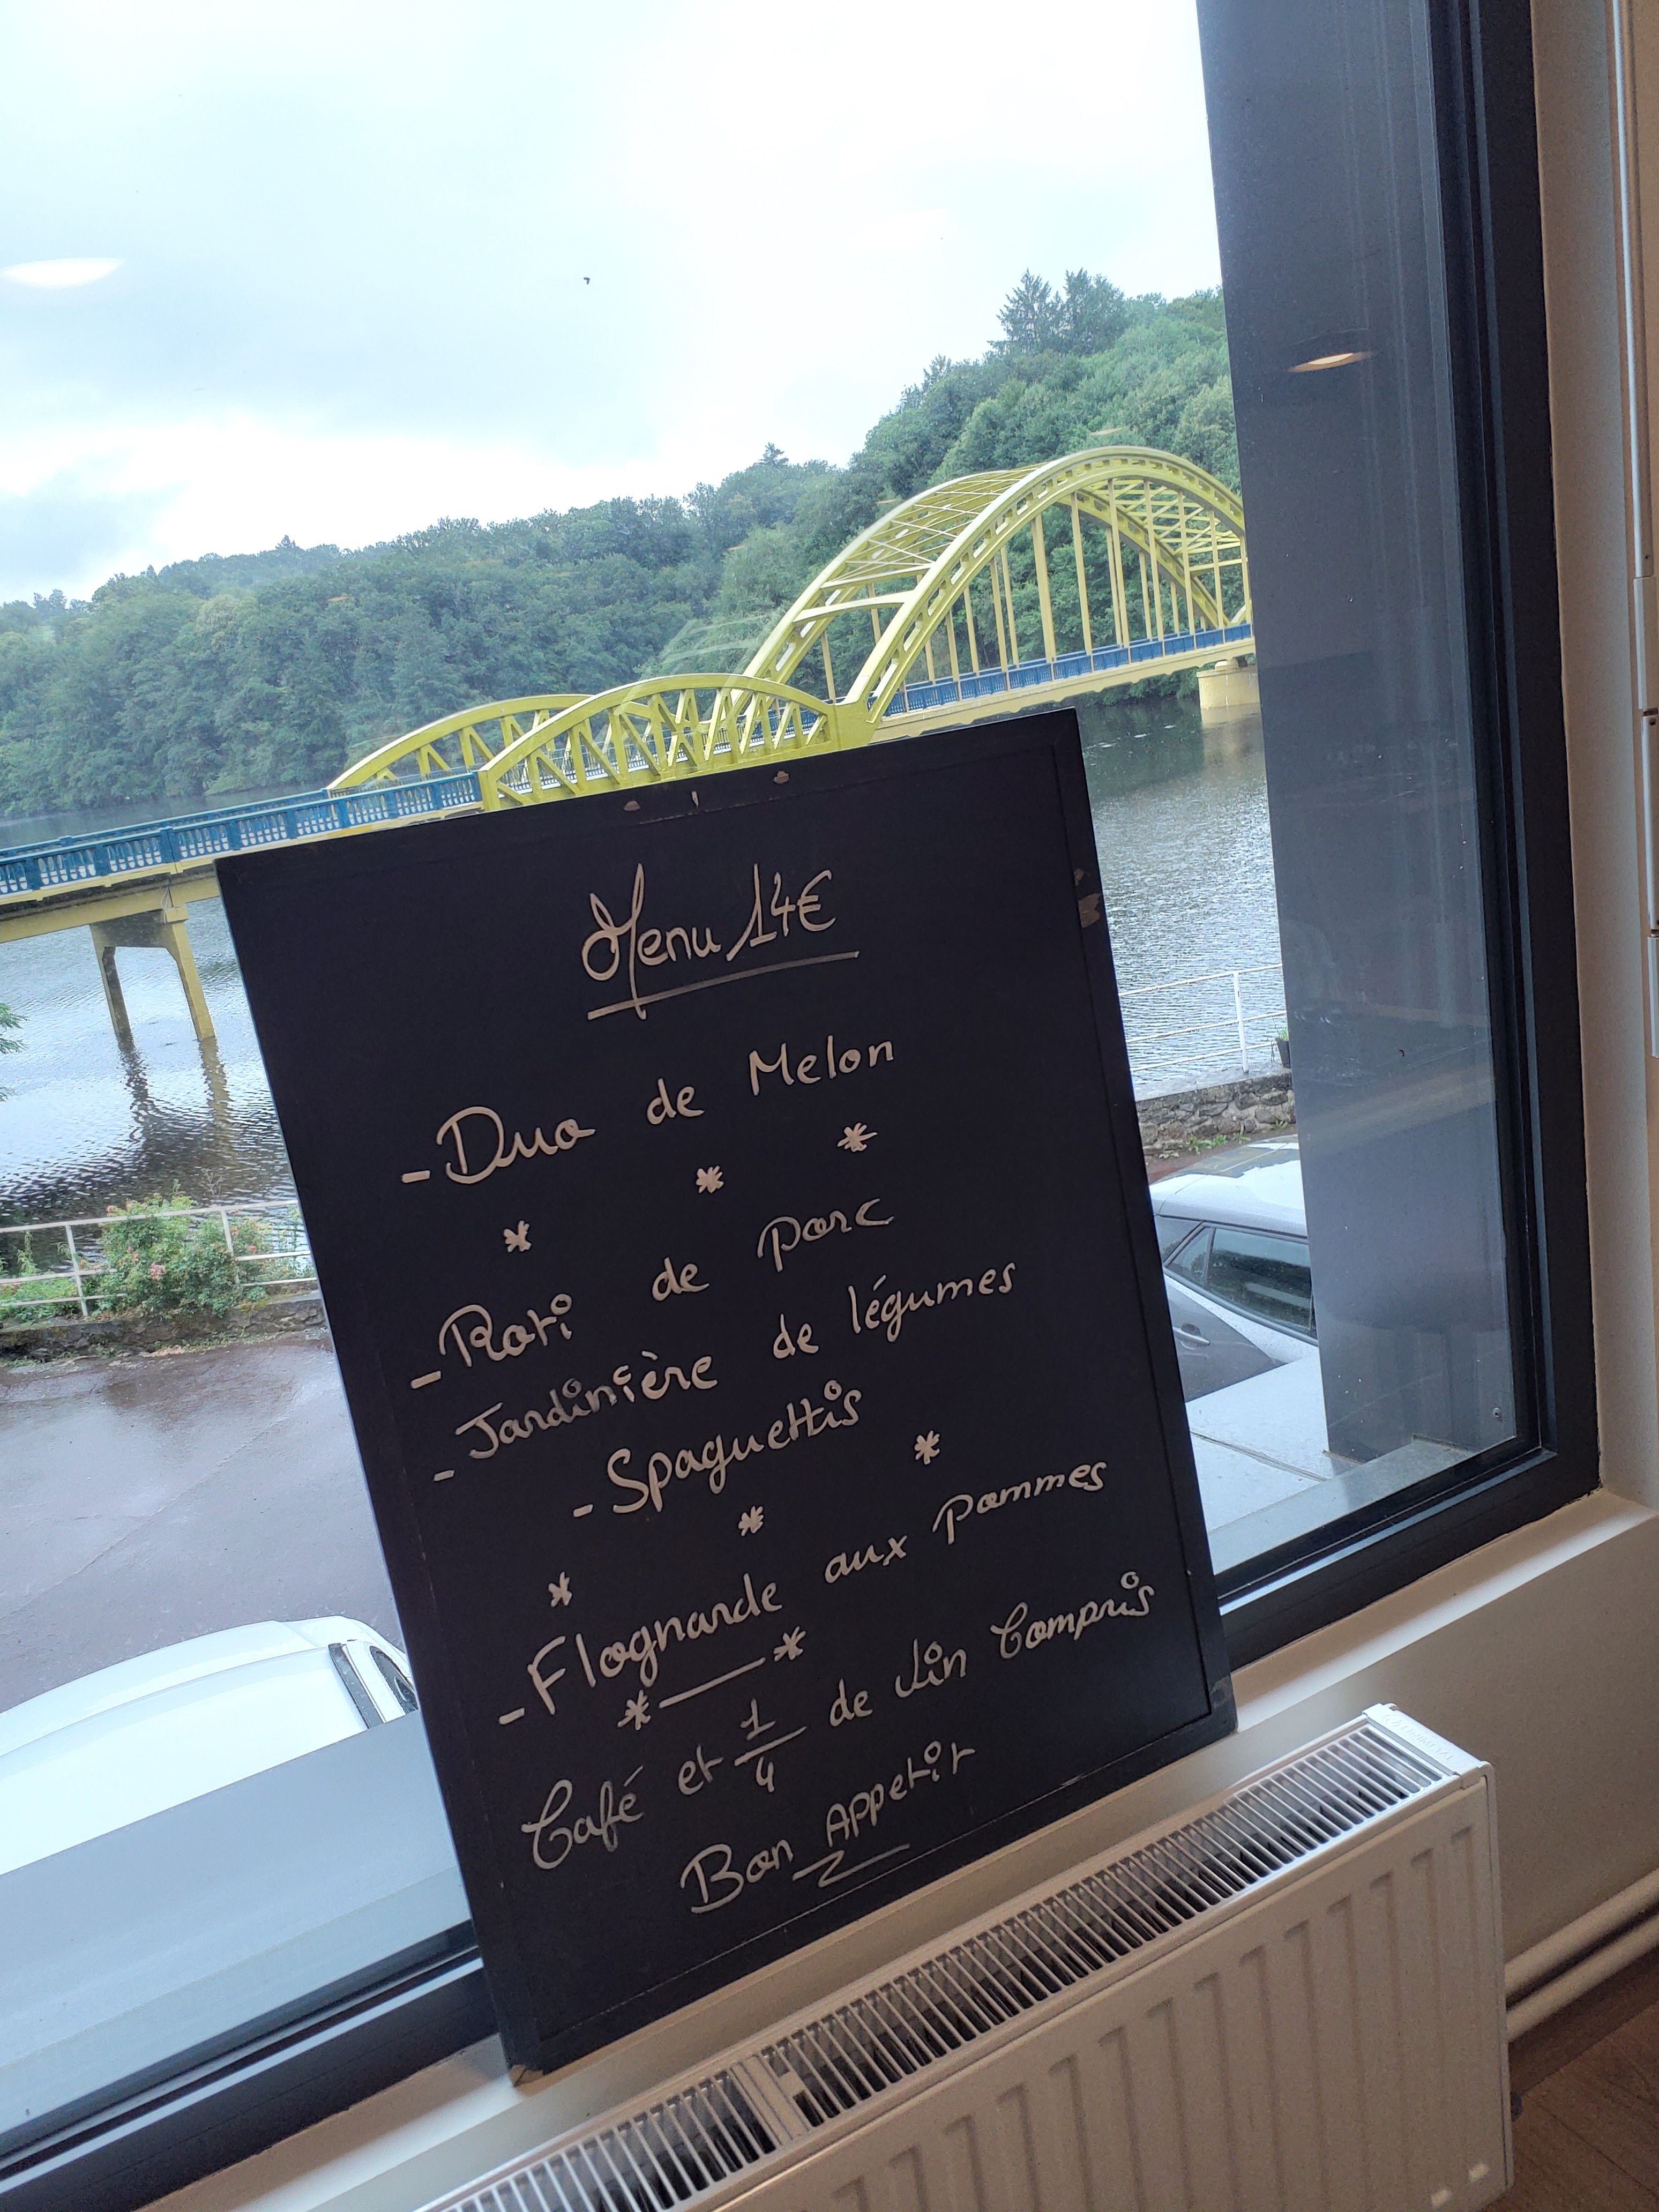 Menu 14€
- Duo de Melon
* * *
- Roti de porc
- Jardinière de légumes
- Spaguettis
* * *
- Flognarde aux pommes
*—*
Café et 1/4 de Vin Compris
Bon Appetit